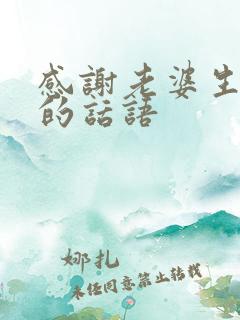 感謝老婆生
的話語
娜扎
未经同意禁止转载